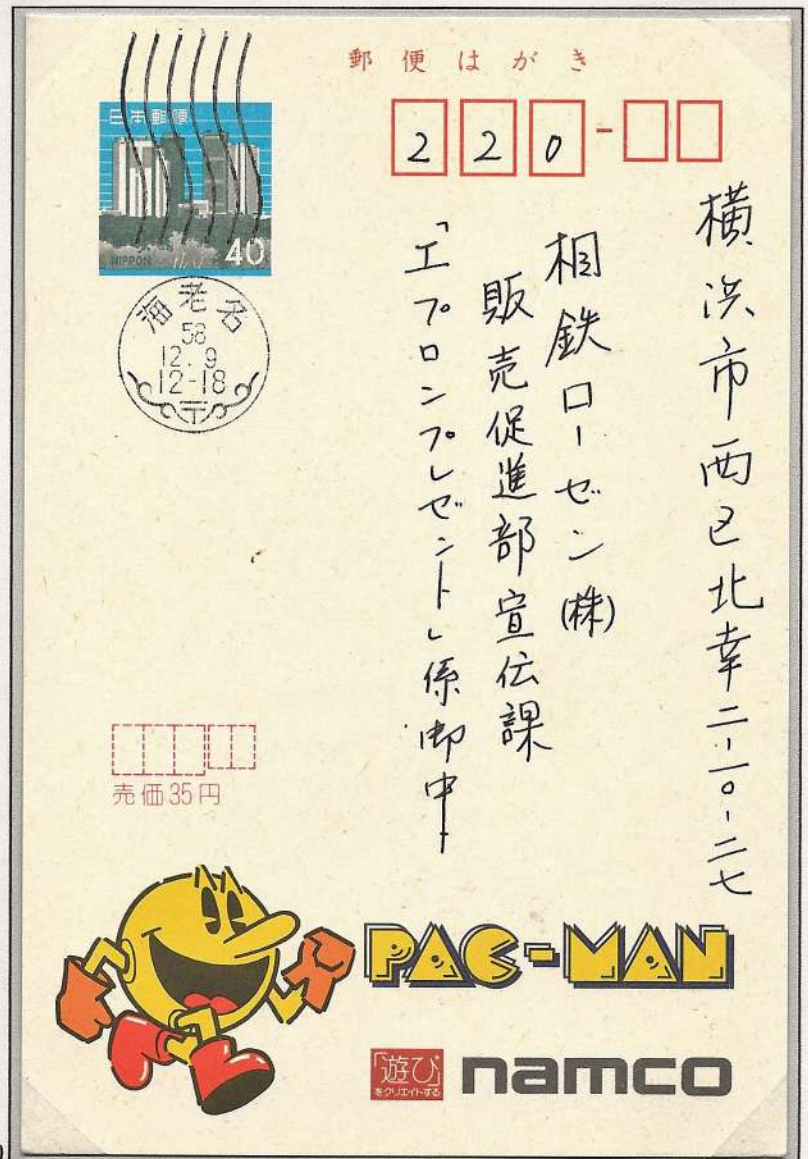 郵便はがき
日本郵便
NIPPON
40
220
海老名
58
12.9
12-18
〒
横浜市西区北幸二-一〇-二七
相鉄ローゼン(株)
販売促進部宣伝課
「エプロンプレゼント」係御中
売価35円
PAC-MAN
「遊び」
をクリエイトする
namco